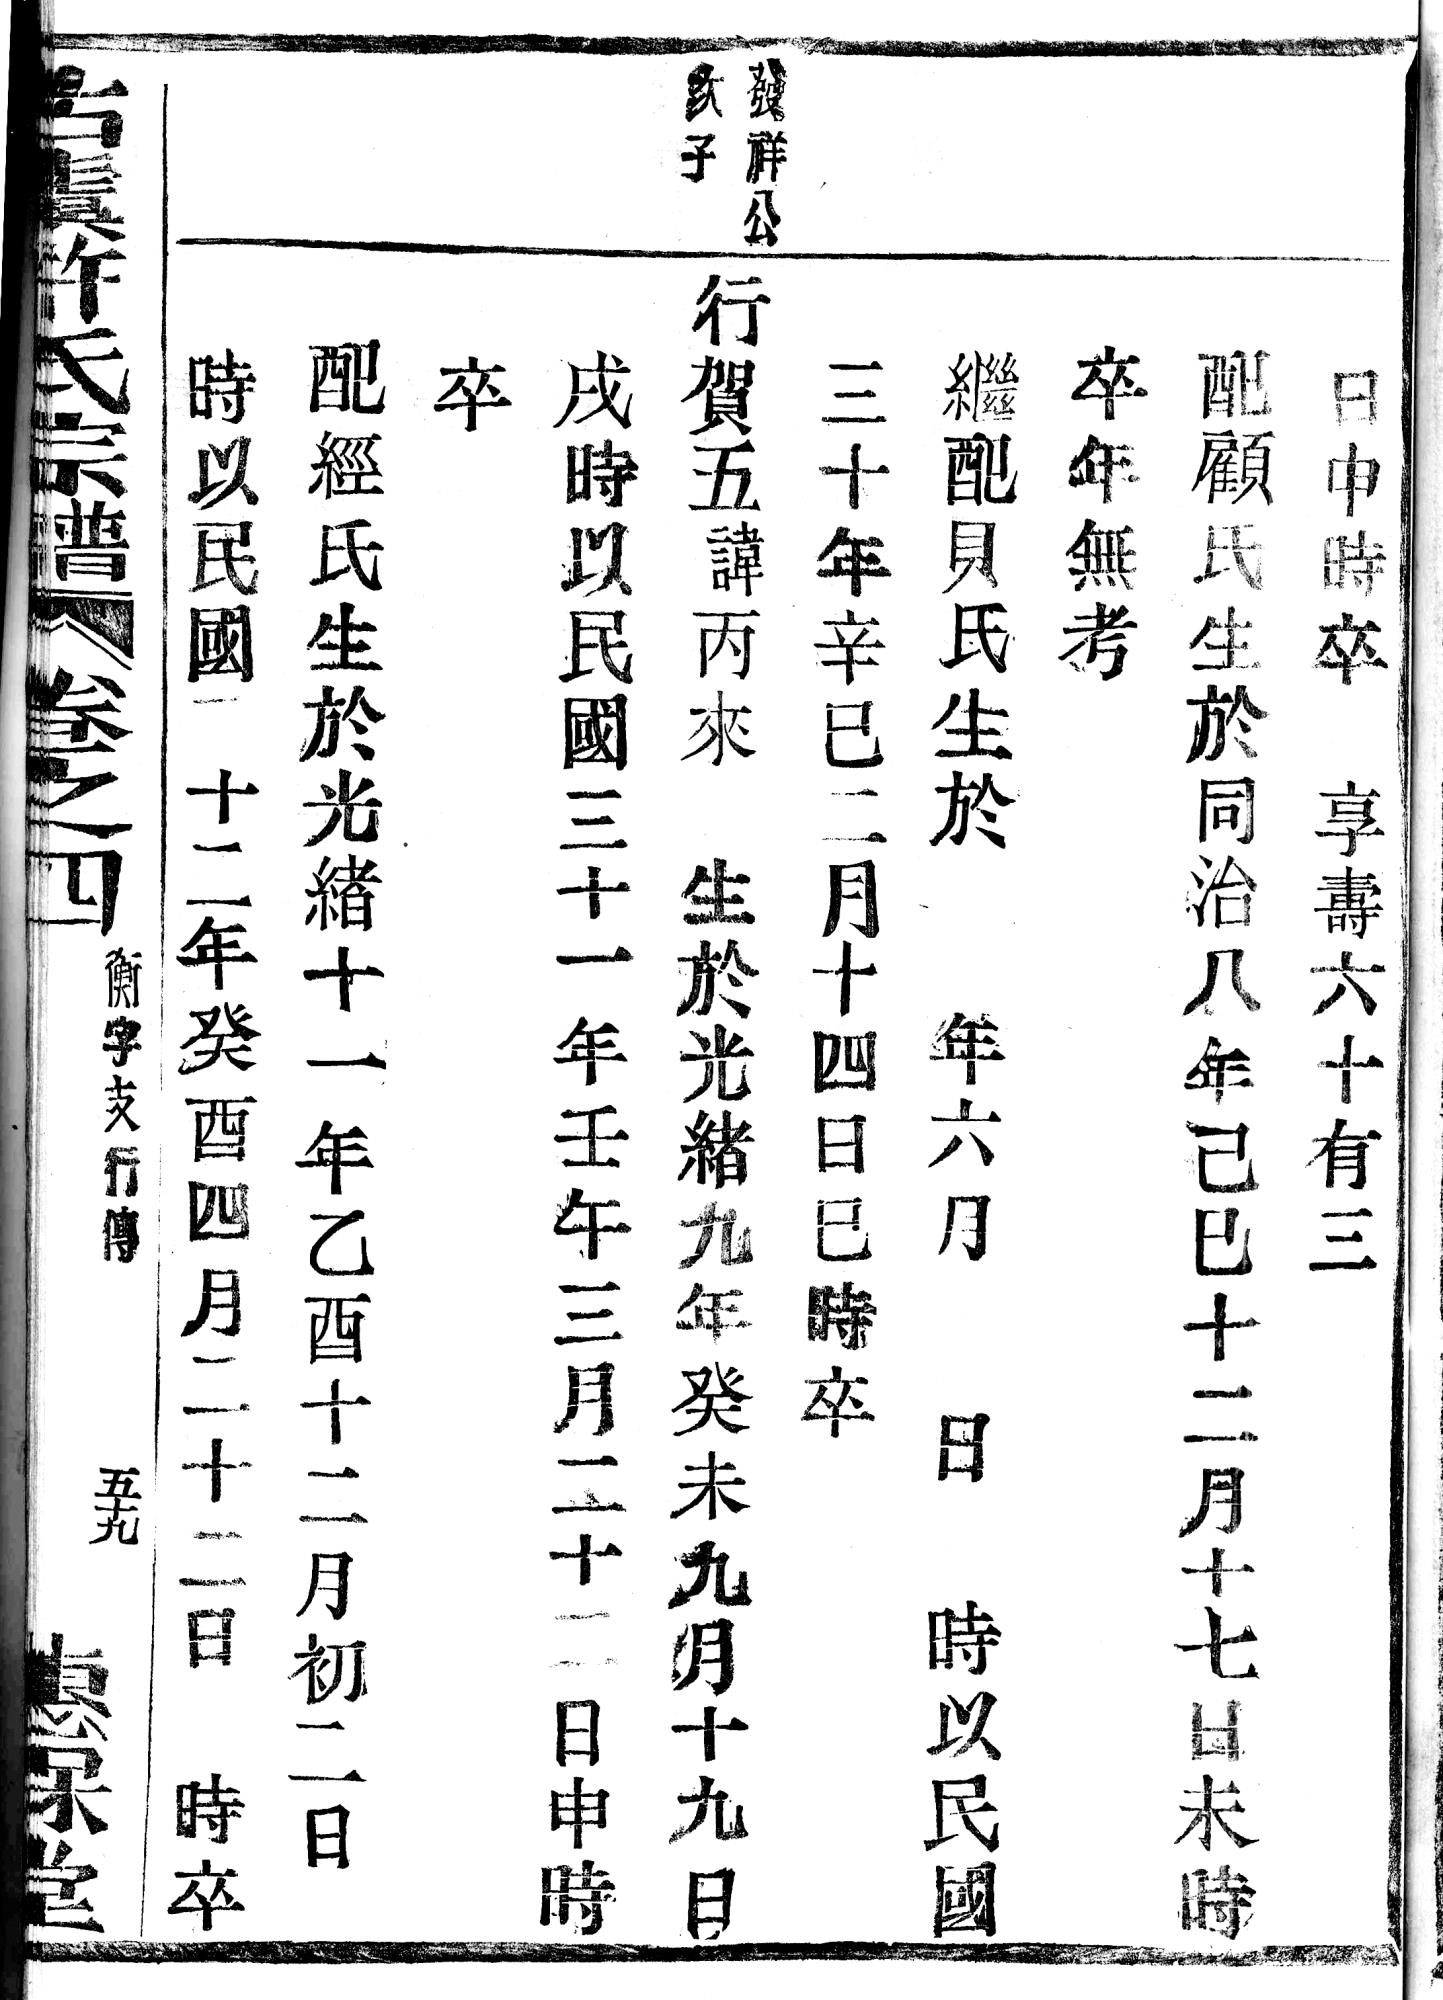 日申時卒　享壽六十有三
配顧氏生於同治八年己巳十二月十七日未時
卒年無考
繼配貝氏生於　年六月　日　時以民國
三十年辛巳二月十四日巳時卒
發祥公
次子
行賀五諱丙來　生於光緒九年癸未九月十九日
戌時以民國三十一年壬午三月二十二日申時
卒
配經氏生於光緒十一年乙酉十二月初二日
時以民國二十二年癸酉四月二十二日　時卒
古虞許氏宗譜　卷之四　衡字支行傳　五十九　惠保堂